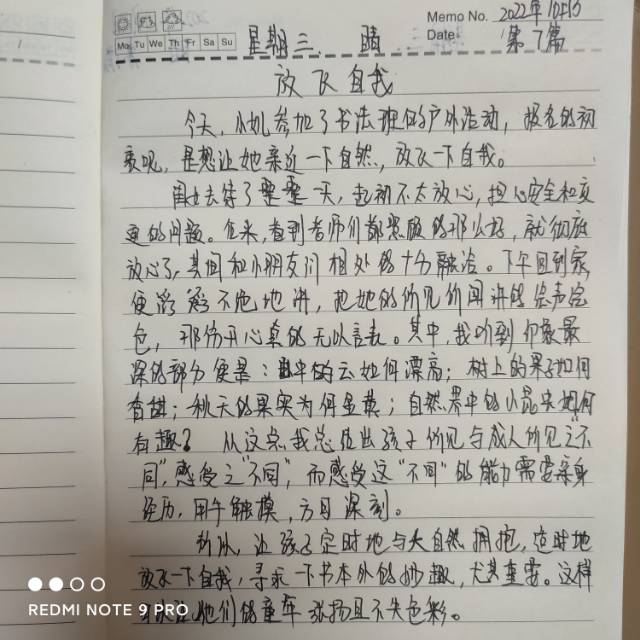 Memo No. 2022年10月5
Mo Tu We Th Fr Sa Su
Date: 第7篇
星期三. 晴
放飞自我
今天,小九参加了书法班的户外活动,报名的初
衷呢,是想让她亲近一下自然,放飞一下自我。
出去待了整整一天,起初不太放心,担心安全和交
通的问题。后来,看到老师们都照顾的那么好,就彻底
放心了,其间和小朋友们相处的十分融洽。下午回到家,
便滔滔不绝地讲,把她的所见所闻讲的绘声绘
色,那份开心真的无以言表。其中,我听到印象最
深的部分便是:空中的云如何漂亮;树上的果子如何
香甜;秋天的果实为何金黄;自然界中的小昆虫如何
有趣? 从这点我总结出孩子所见与成人所见之"不
同",感受之"不同",而感受这"不同"的能力需要亲身
经历,用手触摸,方可深刻。
所以,让孩子定时地与大自然拥抱,定时地
放飞一下自我,寻求一下书本外的妙趣,尤其重要。这样
他们的童年张扬且不失色彩。
REDMI NOTE 9 PRO